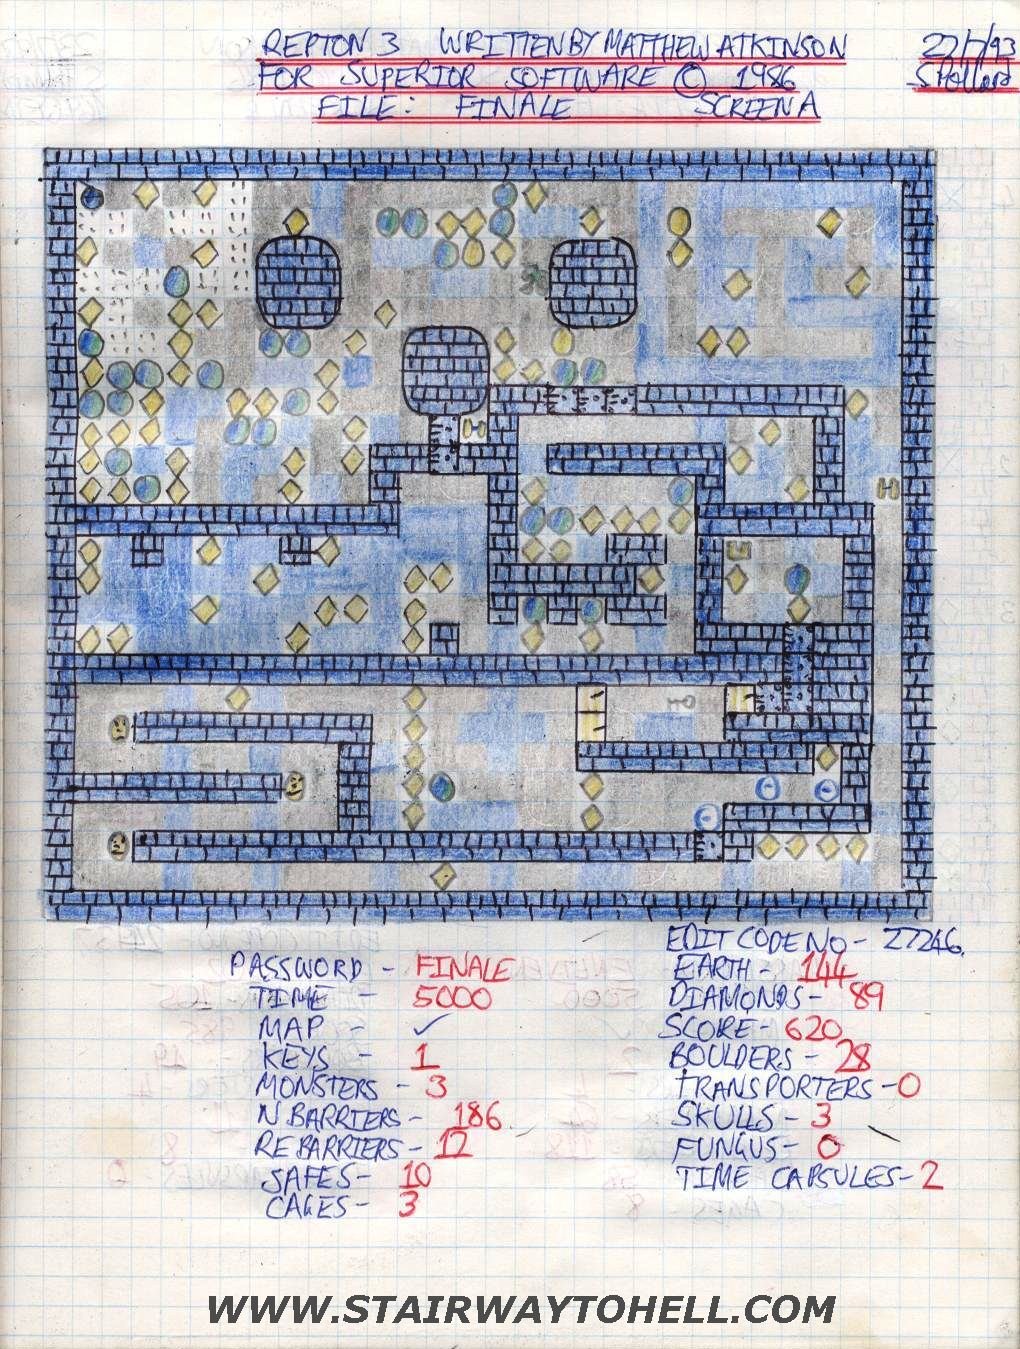 REPTON 3 WRITTEN BY MATTHEW ATKINSON 27/7/93
FOR SUPERIOR SOFTWARE © 1986 S Pollard
FILE: FINALE SCREEN A
EDIT CODE NO - 27246.
PASSWORD - FINALE
EARTH - 144
TIME - 5000
DIAMONDS - 89
MAP - ✓
SCORE - 620
KEYS - 1
BOULDERS - 28
MONSTERS - 3
TRANSPORTERS - 0
N BARRIERS - 186
SKULLS - 3
RE BARRIERS - 12
FUNGUS - 0
SAFES - 10
TIME CAPSULES - 2
CAGES - 3
WWW.STAIRWAYTOHELL.COM